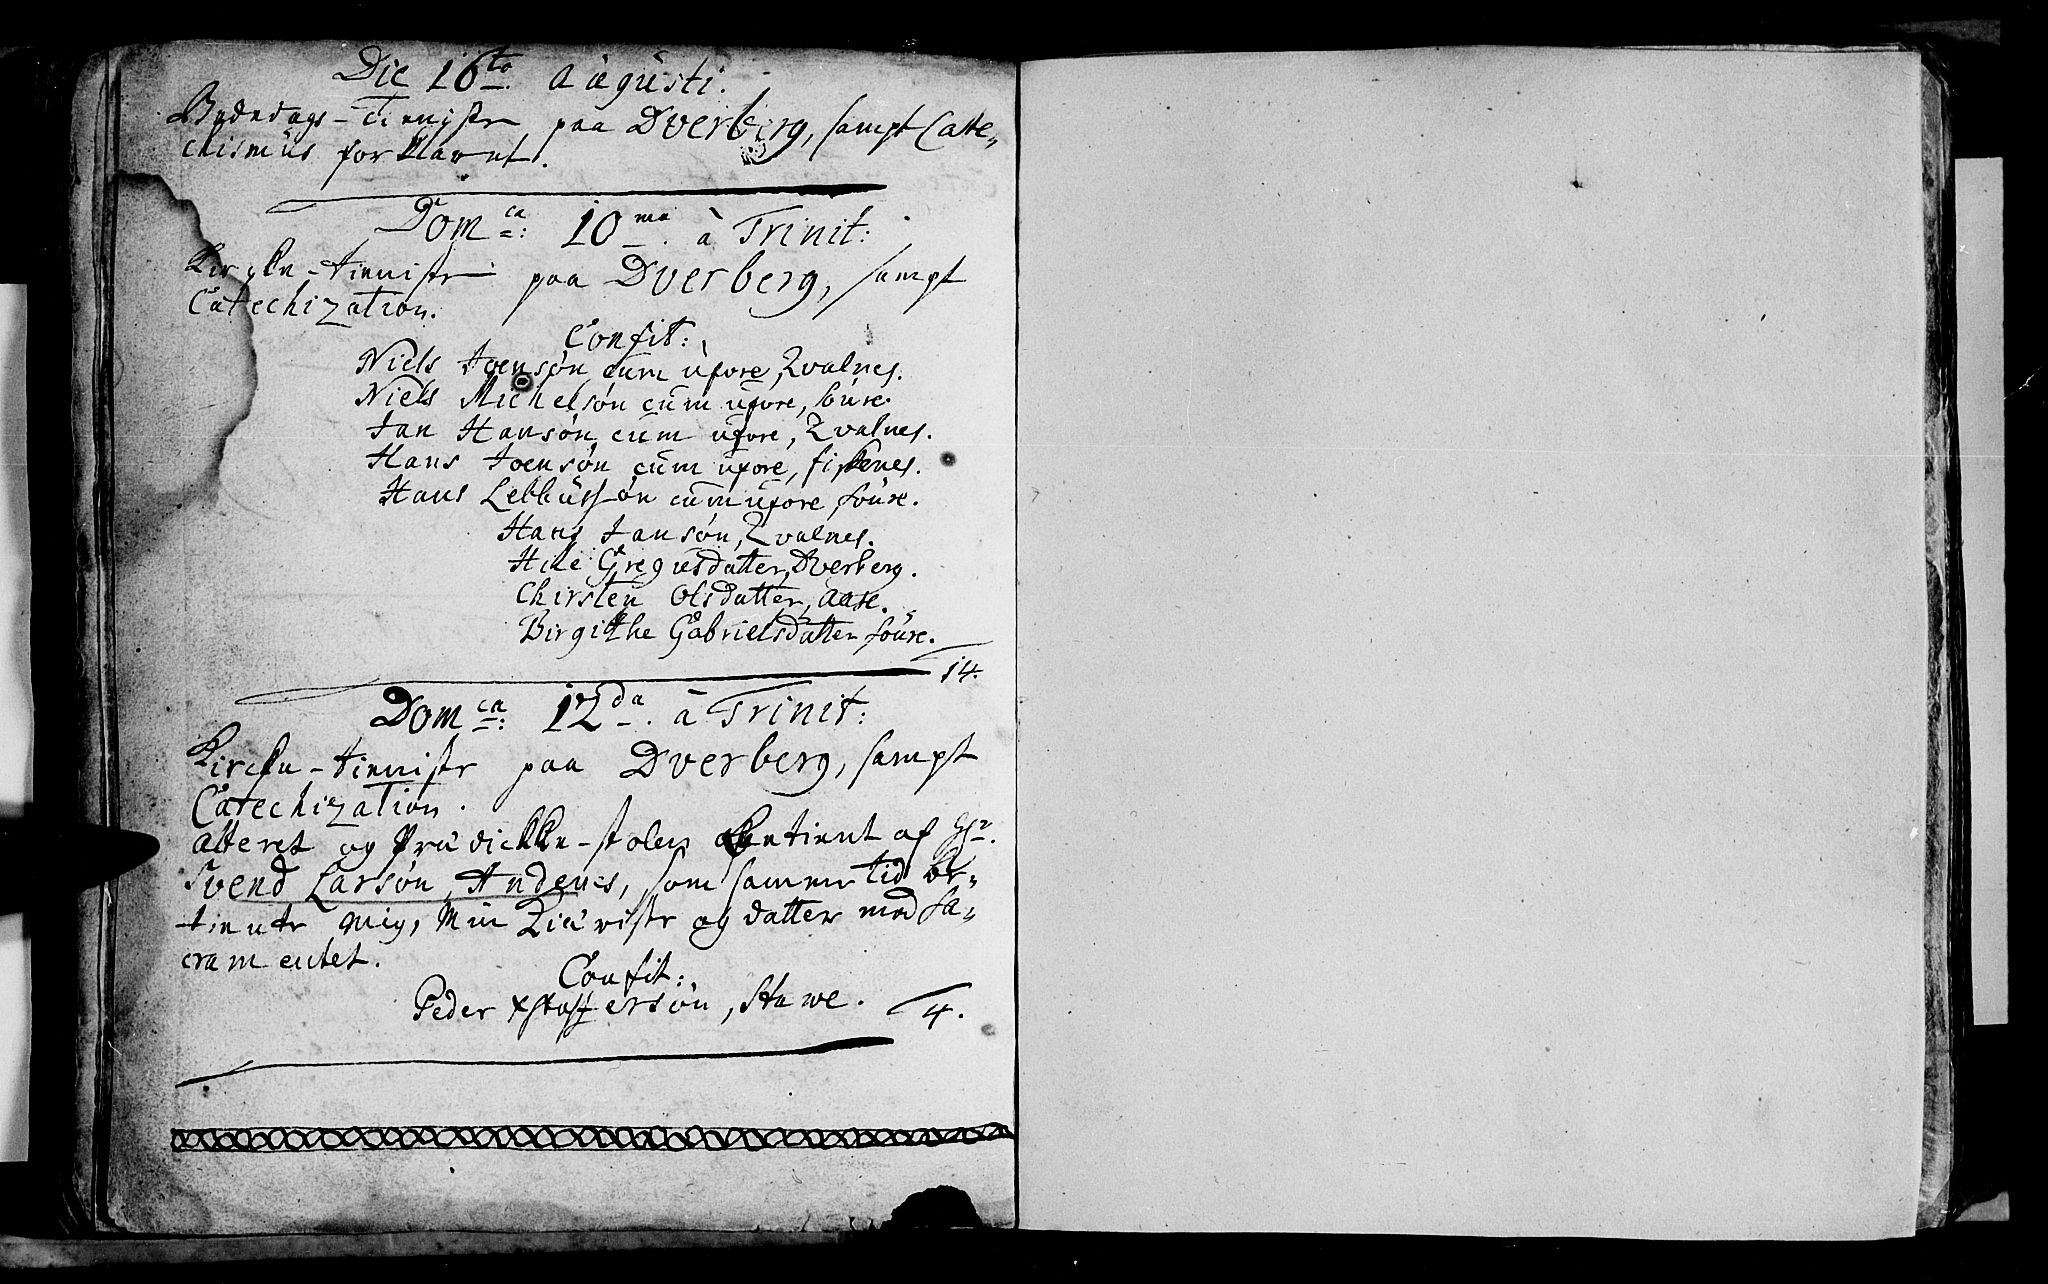 Die 16to. Augusti.
Bededags-Tieniste paa Dverberg, sampt Cate-
chismus forklaret.
Domca: 10ma. à Trinit:
Kircke-tieniste paa Dverberg, sampt
Catechization.
Confit:
Niels Joensøn cum uxore, Qvalnes.
Niels Michelsøn cum uxore, Soure.
Jan Hansøn cum uxore, Qvalnes.
Hans Joensøn cum uxore, fiskenes.
Hans Lebbussøn cum uxore, Soure.
Hans Jansøn, Qvalnes.
Gregusdatter, Dverberg.
Chirsten Olsdatter, Aase.
Birgithe Gabrielsdatter Soure.
14.
Domca: 12da. à Trinit:
Kircke-tieniste paa Dverberg, sampt
Catechization.
Alteret og Prædicke-stolen betient af Hr.
Svend Larsøn, Andenes, som samme tid be-
tiente mig, min Qiæreste og datter med Sa-
cramentet.
Confit:
Peder Xstoffersøn, Stawe.
4.